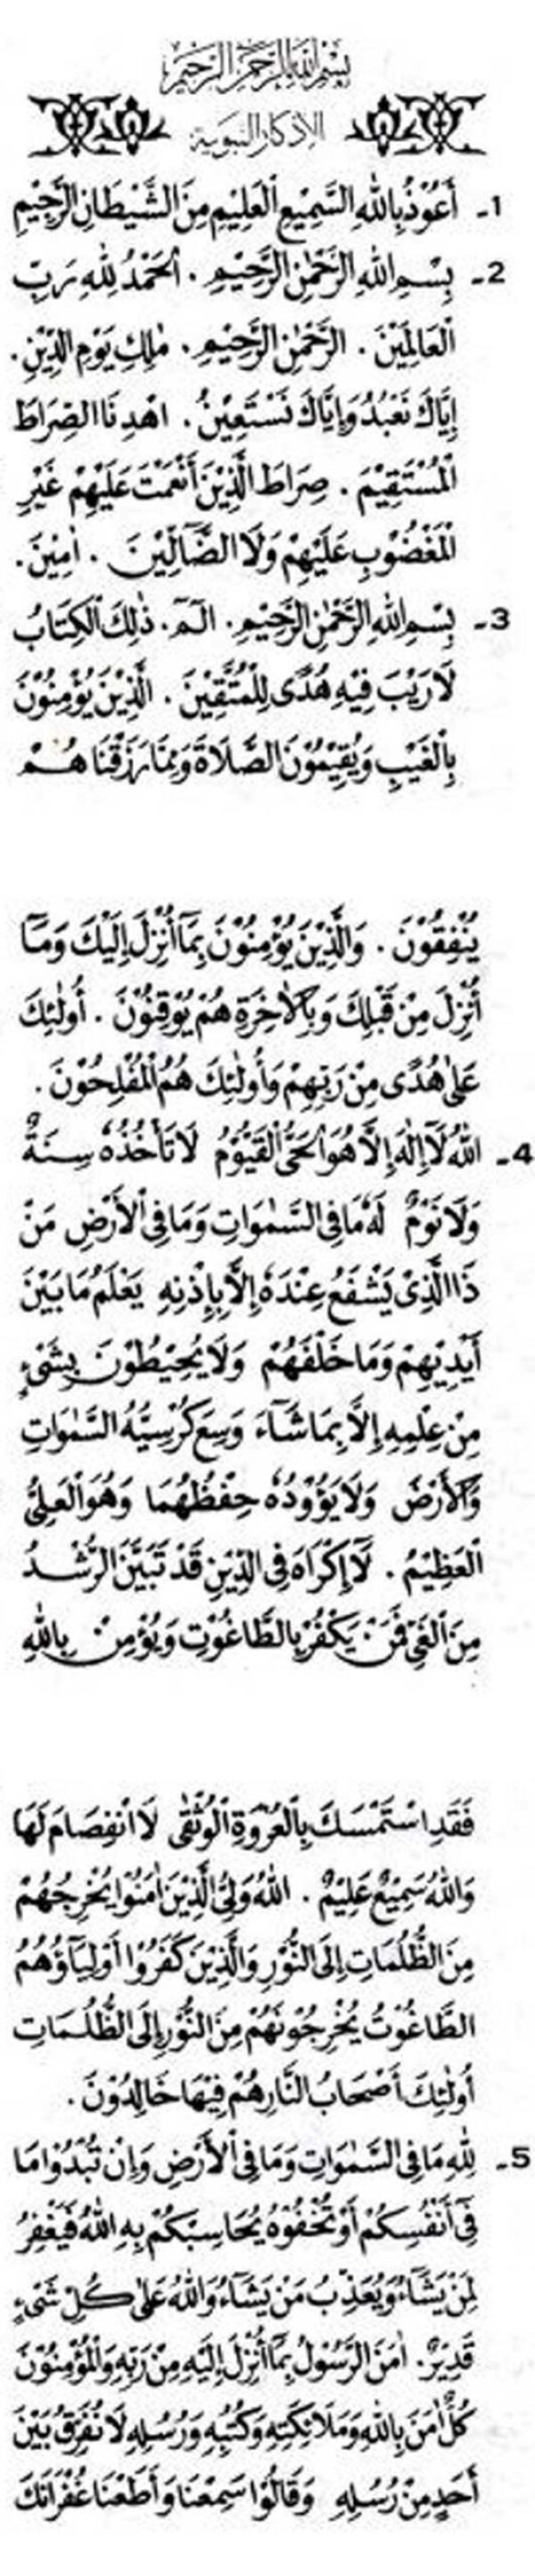 بِسْمِ اللهِ الرَّحْمٰنِ الرَّحِيْمِ
الأذكار النبوية
1- أَعُوْذُ بِاللهِ السَّمِيْعِ الْعَلِيْمِ مِنَ الشَّيْطَانِ الرَّجِيْمِ
2- بِسْمِ اللهِ الرَّحْمٰنِ الرَّحِيْمِ . اَلْحَمْدُ لِلّٰهِ رَبِّ
الْعَالَمِيْنَ . الرَّحْمٰنِ الرَّحِيْمِ . مٰلِكِ يَوْمِ الدِّيْنِ .
إِيَّاكَ نَعْبُدُ وَإِيَّاكَ نَسْتَعِيْنُ . اهْدِنَا الصِّرَاطَ
الْمُسْتَقِيْمَ . صِرَاطَ الَّذِيْنَ أَنْعَمْتَ عَلَيْهِمْ غَيْرِ
الْمَغْضُوْبِ عَلَيْهِمْ وَلَا الضَّآلِّيْنَ . اٰمِيْنَ .
3- بِسْمِ اللهِ الرَّحْمٰنِ الرَّحِيْمِ . الٓمٓ . ذٰلِكَ الْكِتَابُ
لَا رَيْبَ فِيْهِ هُدًى لِلْمُتَّقِيْنَ . الَّذِيْنَ يُؤْمِنُوْنَ
بِالْغَيْبِ وَيُقِيْمُوْنَ الصَّلَاةَ وَمِمَّا رَزَقْنَاهُمْ
يُنْفِقُوْنَ . وَالَّذِيْنَ يُؤْمِنُوْنَ بِمَآ أُنْزِلَ إِلَيْكَ وَمَآ
أُنْزِلَ مِنْ قَبْلِكَ وَبِالْاٰخِرَةِ هُمْ يُوْقِنُوْنَ . أُولٰئِكَ
عَلٰى هُدًى مِنْ رَبِّهِمْ وَأُولٰئِكَ هُمُ الْمُفْلِحُوْنَ .
4- اَللهُ لَآ إِلٰهَ إِلَّا هُوَ الْحَيُّ الْقَيُّوْمُ لَا تَأْخُذُهٗ سِنَةٌ
وَلَا نَوْمٌ لَهٗ مَا فِى السَّمٰوَاتِ وَمَا فِى الْأَرْضِ مَنْ
ذَا الَّذِىْ يَشْفَعُ عِنْدَهٗ إِلَّا بِإِذْنِهِ يَعْلَمُ مَا بَيْنَ
أَيْدِيْهِمْ وَمَا خَلْفَهُمْ وَلَا يُحِيْطُوْنَ بِشَىْءٍ
مِنْ عِلْمِهِ إِلَّا بِمَا شَآءَ وَسِعَ كُرْسِيُّهُ السَّمٰوَاتِ
وَالْأَرْضَ وَلَا يَؤُوْدُهٗ حِفْظُهُمَا وَهُوَ الْعَلِىُّ
الْعَظِيْمُ . لَآ إِكْرَاهَ فِى الدِّيْنِ قَدْ تَبَيَّنَ الرُّشْدُ
مِنَ الْغَىِّ فَمَنْ يَكْفُرْ بِالطَّاغُوْتِ وَيُؤْمِنْ بِاللهِ
فَقَدِ اسْتَمْسَكَ بِالْعُرْوَةِ الْوُثْقٰى لَا انْفِصَامَ لَهَا
وَاللهُ سَمِيْعٌ عَلِيْمٌ . اَللهُ وَلِىُّ الَّذِيْنَ اٰمَنُوْا يُخْرِجُهُمْ
مِنَ الظُّلُمَاتِ إِلَى النُّوْرِ وَالَّذِيْنَ كَفَرُوْا أَوْلِيَآؤُهُمُ
الطَّاغُوْتُ يُخْرِجُوْنَهُمْ مِنَ النُّوْرِ إِلَى الظُّلُمَاتِ
أُولٰئِكَ أَصْحَابُ النَّارِ هُمْ فِيْهَا خَالِدُوْنَ .
5- لِلّٰهِ مَا فِى السَّمٰوَاتِ وَمَا فِى الْأَرْضِ وَإِنْ تُبْدُوْا مَا
فِىٓ أَنْفُسِكُمْ أَوْ تُخْفُوْهُ يُحَاسِبْكُمْ بِهِ اللهُ فَيَغْفِرُ
لِمَنْ يَشَآءُ وَيُعَذِّبُ مَنْ يَشَآءُ وَاللهُ عَلٰى كُلِّ شَىْءٍ
قَدِيْرٌ . اٰمَنَ الرَّسُوْلُ بِمَآ أُنْزِلَ إِلَيْهِ مِنْ رَبِّهِ وَالْمُؤْمِنُوْنَ
كُلٌّ اٰمَنَ بِاللهِ وَمَلَائِكَتِهِ وَكُتُبِهِ وَرُسُلِهِ لَا نُفَرِّقُ بَيْنَ
أَحَدٍ مِنْ رُسُلِهِ وَقَالُوْا سَمِعْنَا وَأَطَعْنَا غُفْرَانَكَ